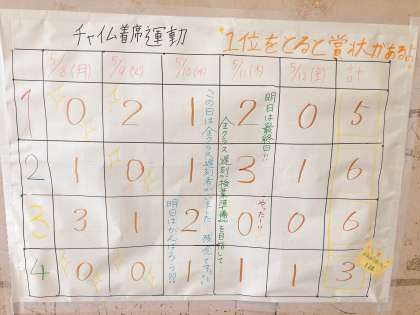 チャイム着席運動
1位をとると賞状がある
5/8(月) 5/9(火) 5/10(水) 5/11(木) 5/12(金) 計
1 0 2 1 2 0 5
2 1 0 1 3 1 6
3 3 1 2 0 0 6
4 0 0 1 1 1 3
この日は全クラス遅刻者がいました 残念です。
明日はがんばろっ!!
全クラス遅刻0授業準備を目指して
明日は最終日!!
やったー!!